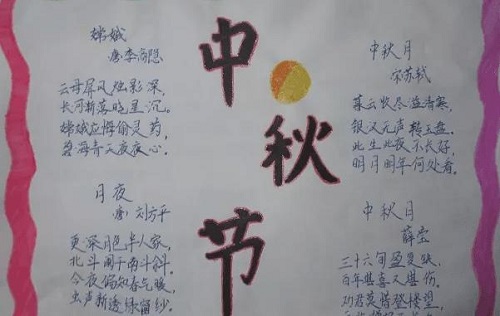 嫦娥
唐·李商隐
云母屏风烛影深,
长河渐落晓星沉。
嫦娥应悔偷灵药,
碧海青天夜夜心。
月夜
唐) 刘方平
更深月色半人家,
北斗阑干南斗斜。
今夜偏知春气暖,
虫声新透绿窗纱。
中
秋
节
中秋月
宋苏轼
暮云收尽溢清寒,
银汉无声转玉盘。
此生此夜不长好,
明月明年何处看。
中秋月
薛莹
三十六旬盈复缺,
百年堪喜又堪伤。
劝君莫惜登楼望,